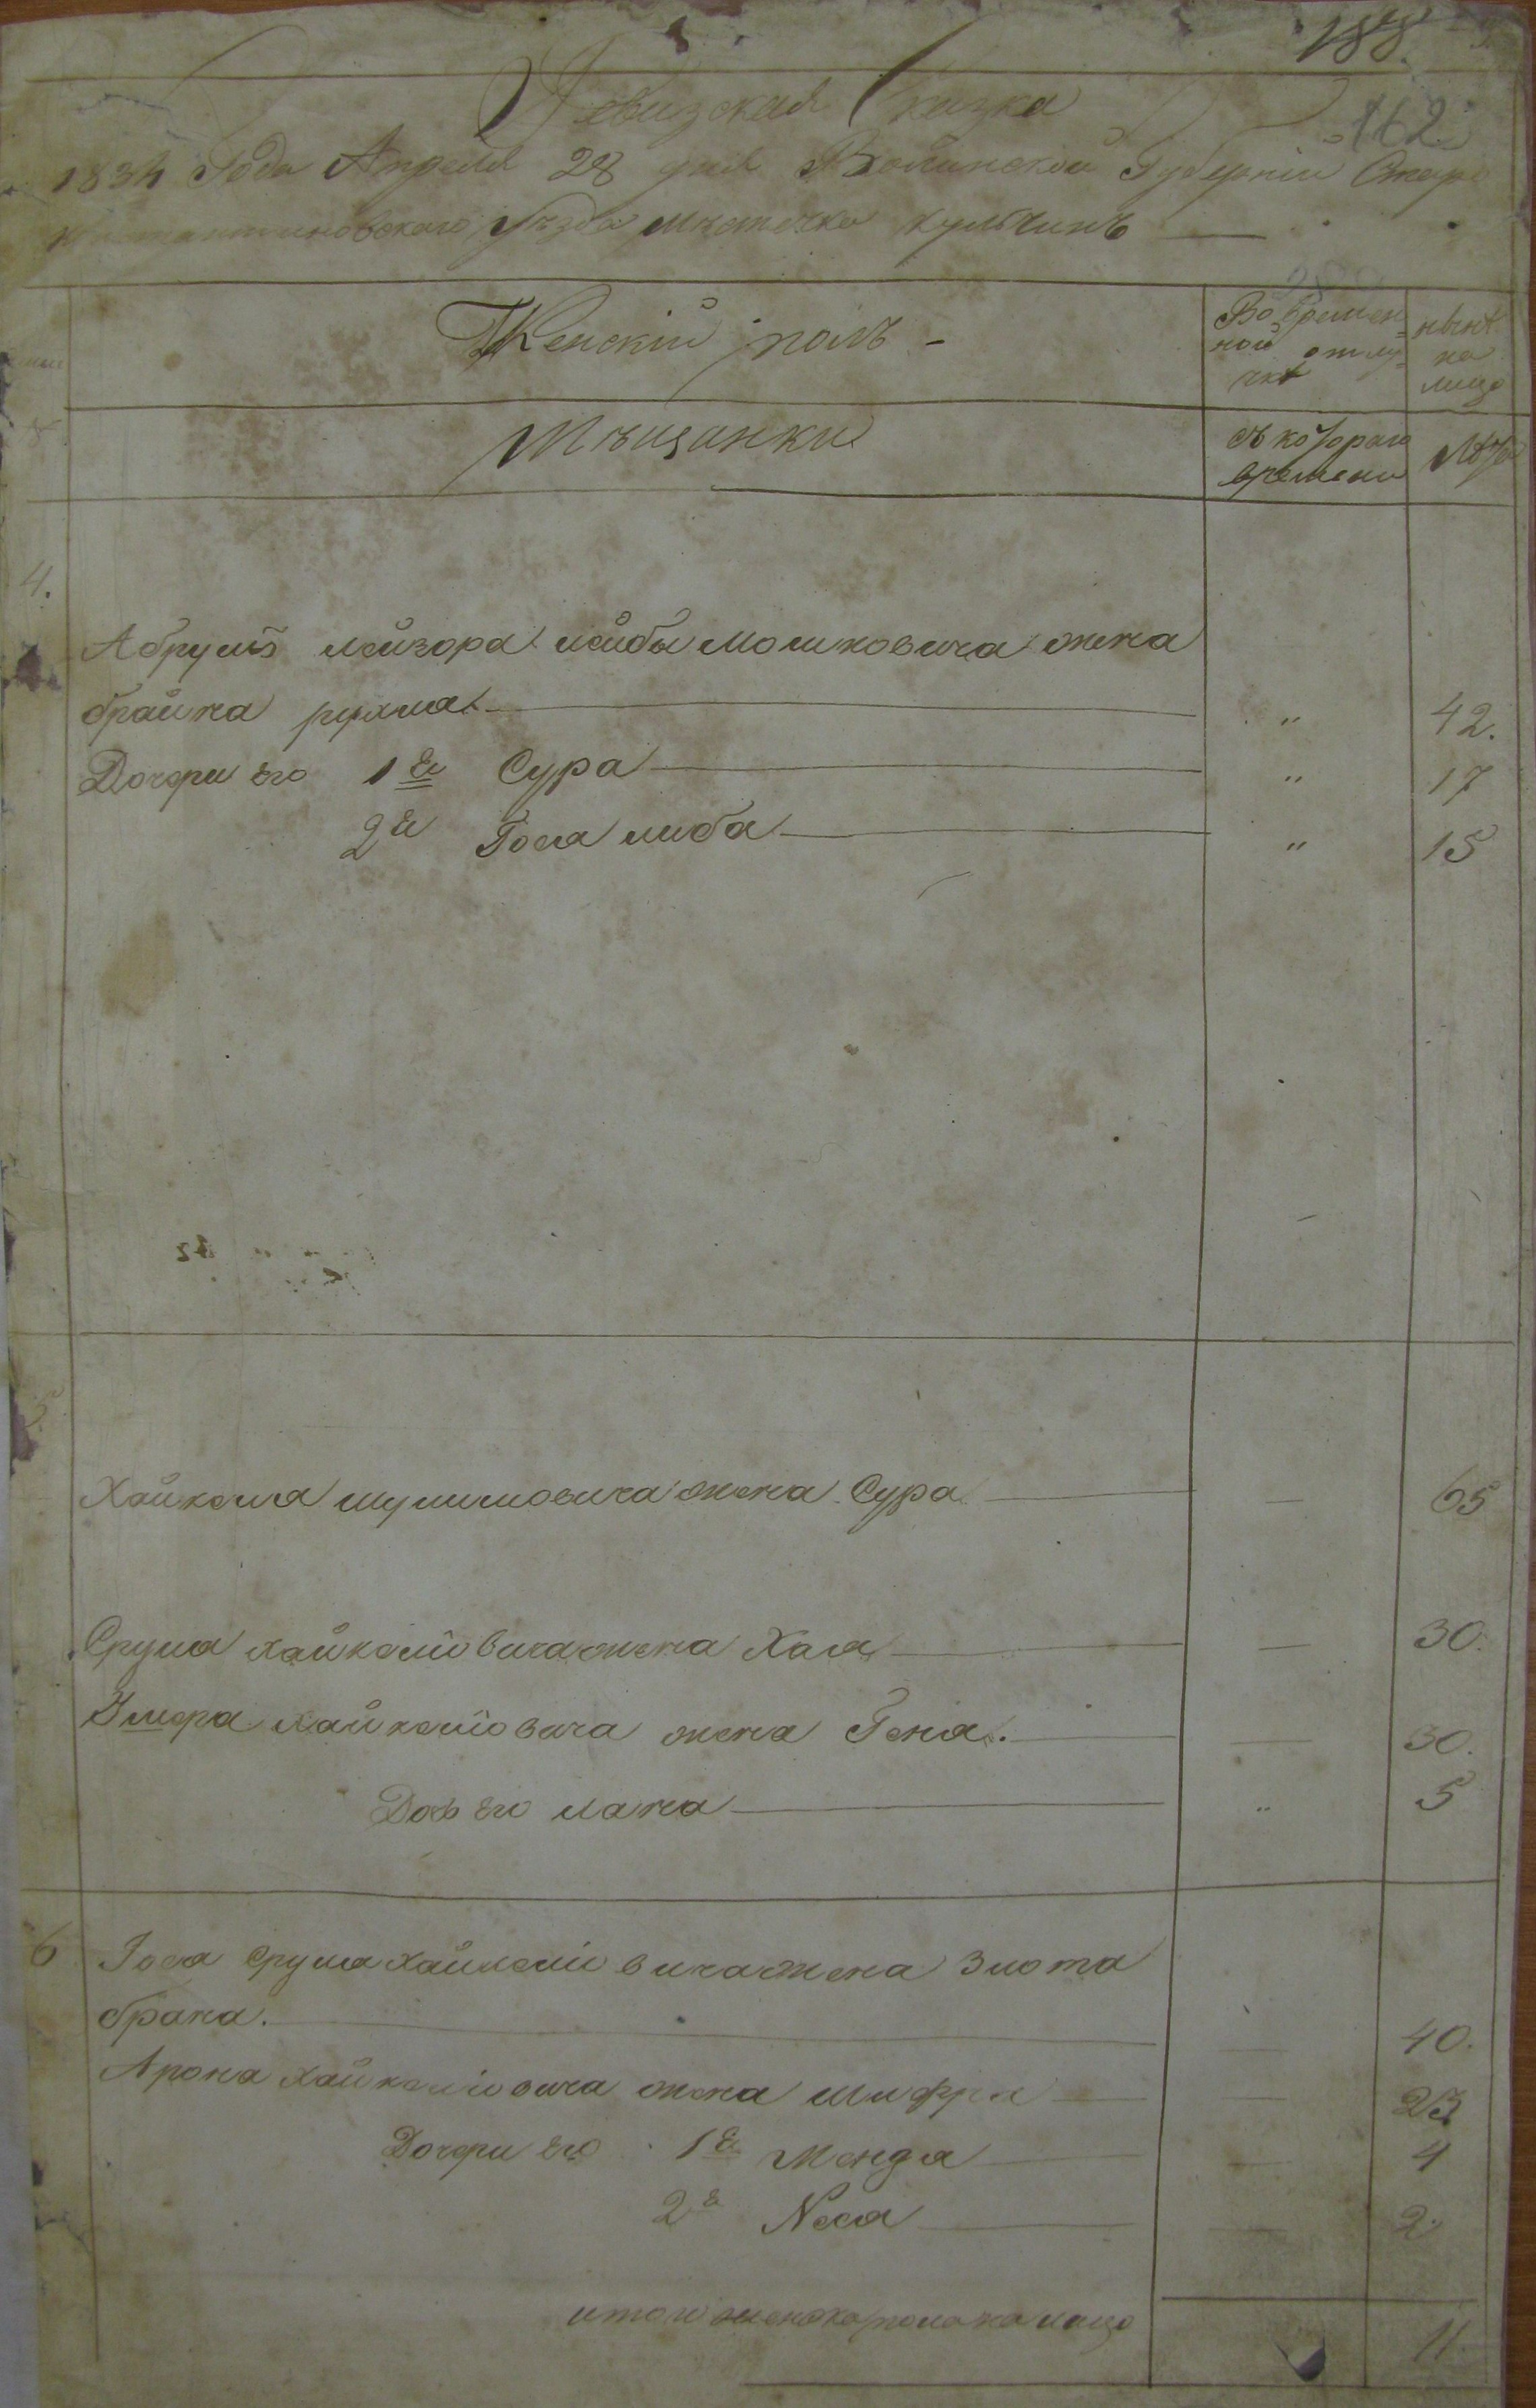 188.
162.
Ревизская Сказка
1834 Года Апреля 28 дня Волинской Губерніи Старо
Константиновскаго уѣзда мѣстечка кульчинъ
Женскій полъ -
Во времен=
ной отлу=
чкѣ
нынѣ
на
лицо
Мѣщанки
съ котораго
времени
Лѣта
4.
лейзора лейбы Мошковича жена
брайна рухля
"
42.
Дочери его 1я Сура
"
17
2я
"
15
Хайкеля шулимовича жена Сура
65
Сруля хайкелiовича жена Хая
30.
хайкелiовича жена Геня.
30.
Дочь его хана
"
5
6
Сруля хайкелiовича жена Злота
брана.
40.
Арона хайкелiовича жена Шифра
23
Дочери его 1я Мендя
4
2я Неся
2.
итого женска пола на лицо
11.